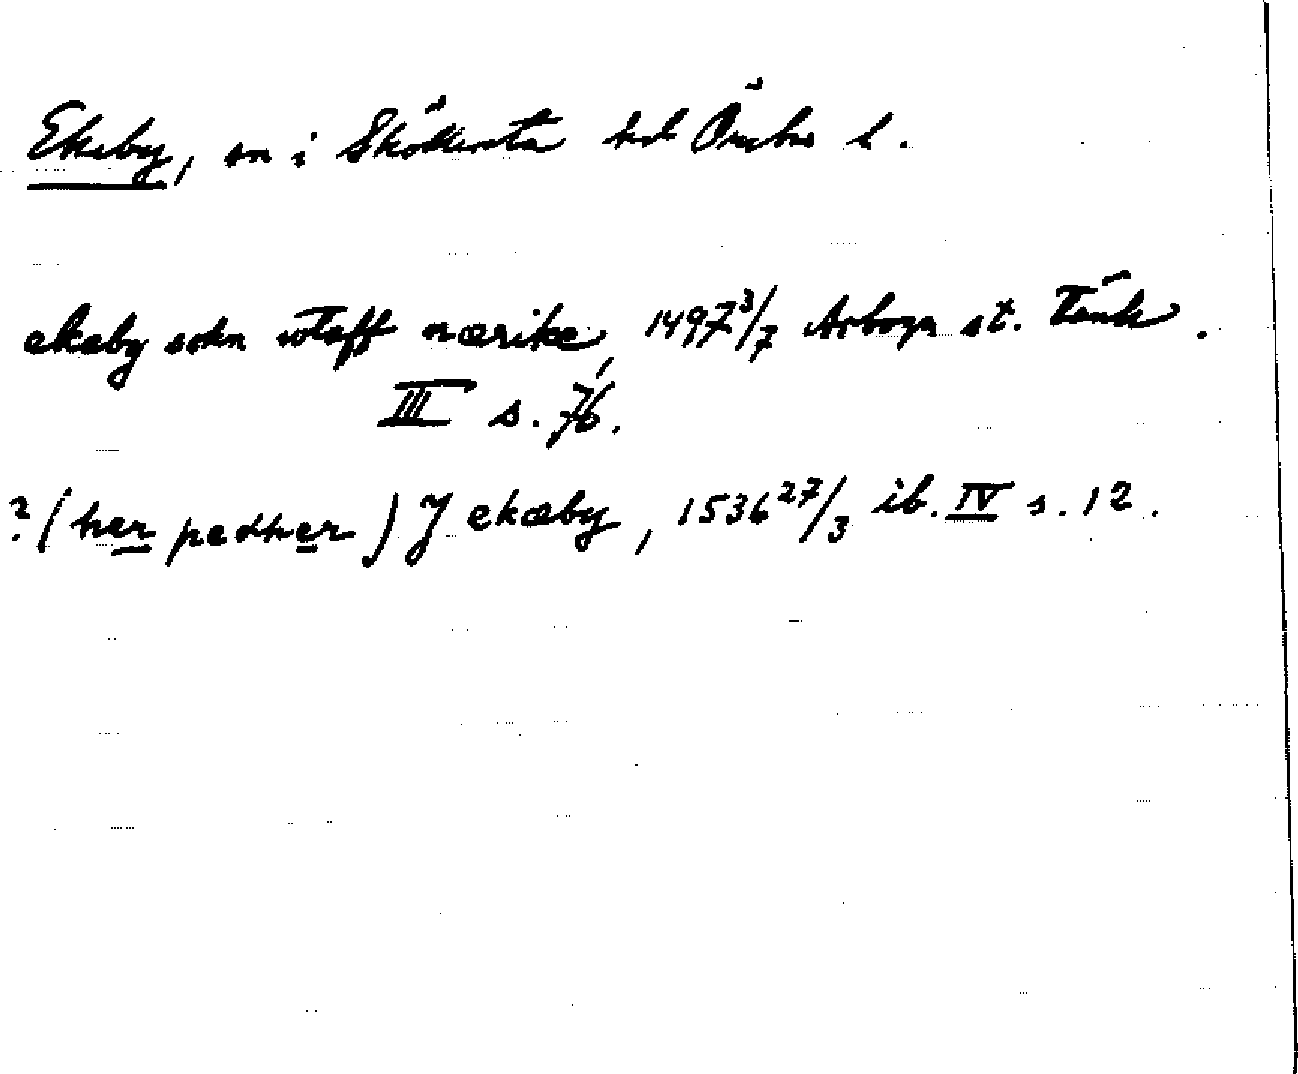 Ekeby, sn i Sköllersta hd Örebro l.
ekeby sokn wtaff nærike, 1497 3/7 Arboga st. Tänk.
III s. 76.
?(her pedher) J ekæby, 1536 27/3 ib. IV s. 12.